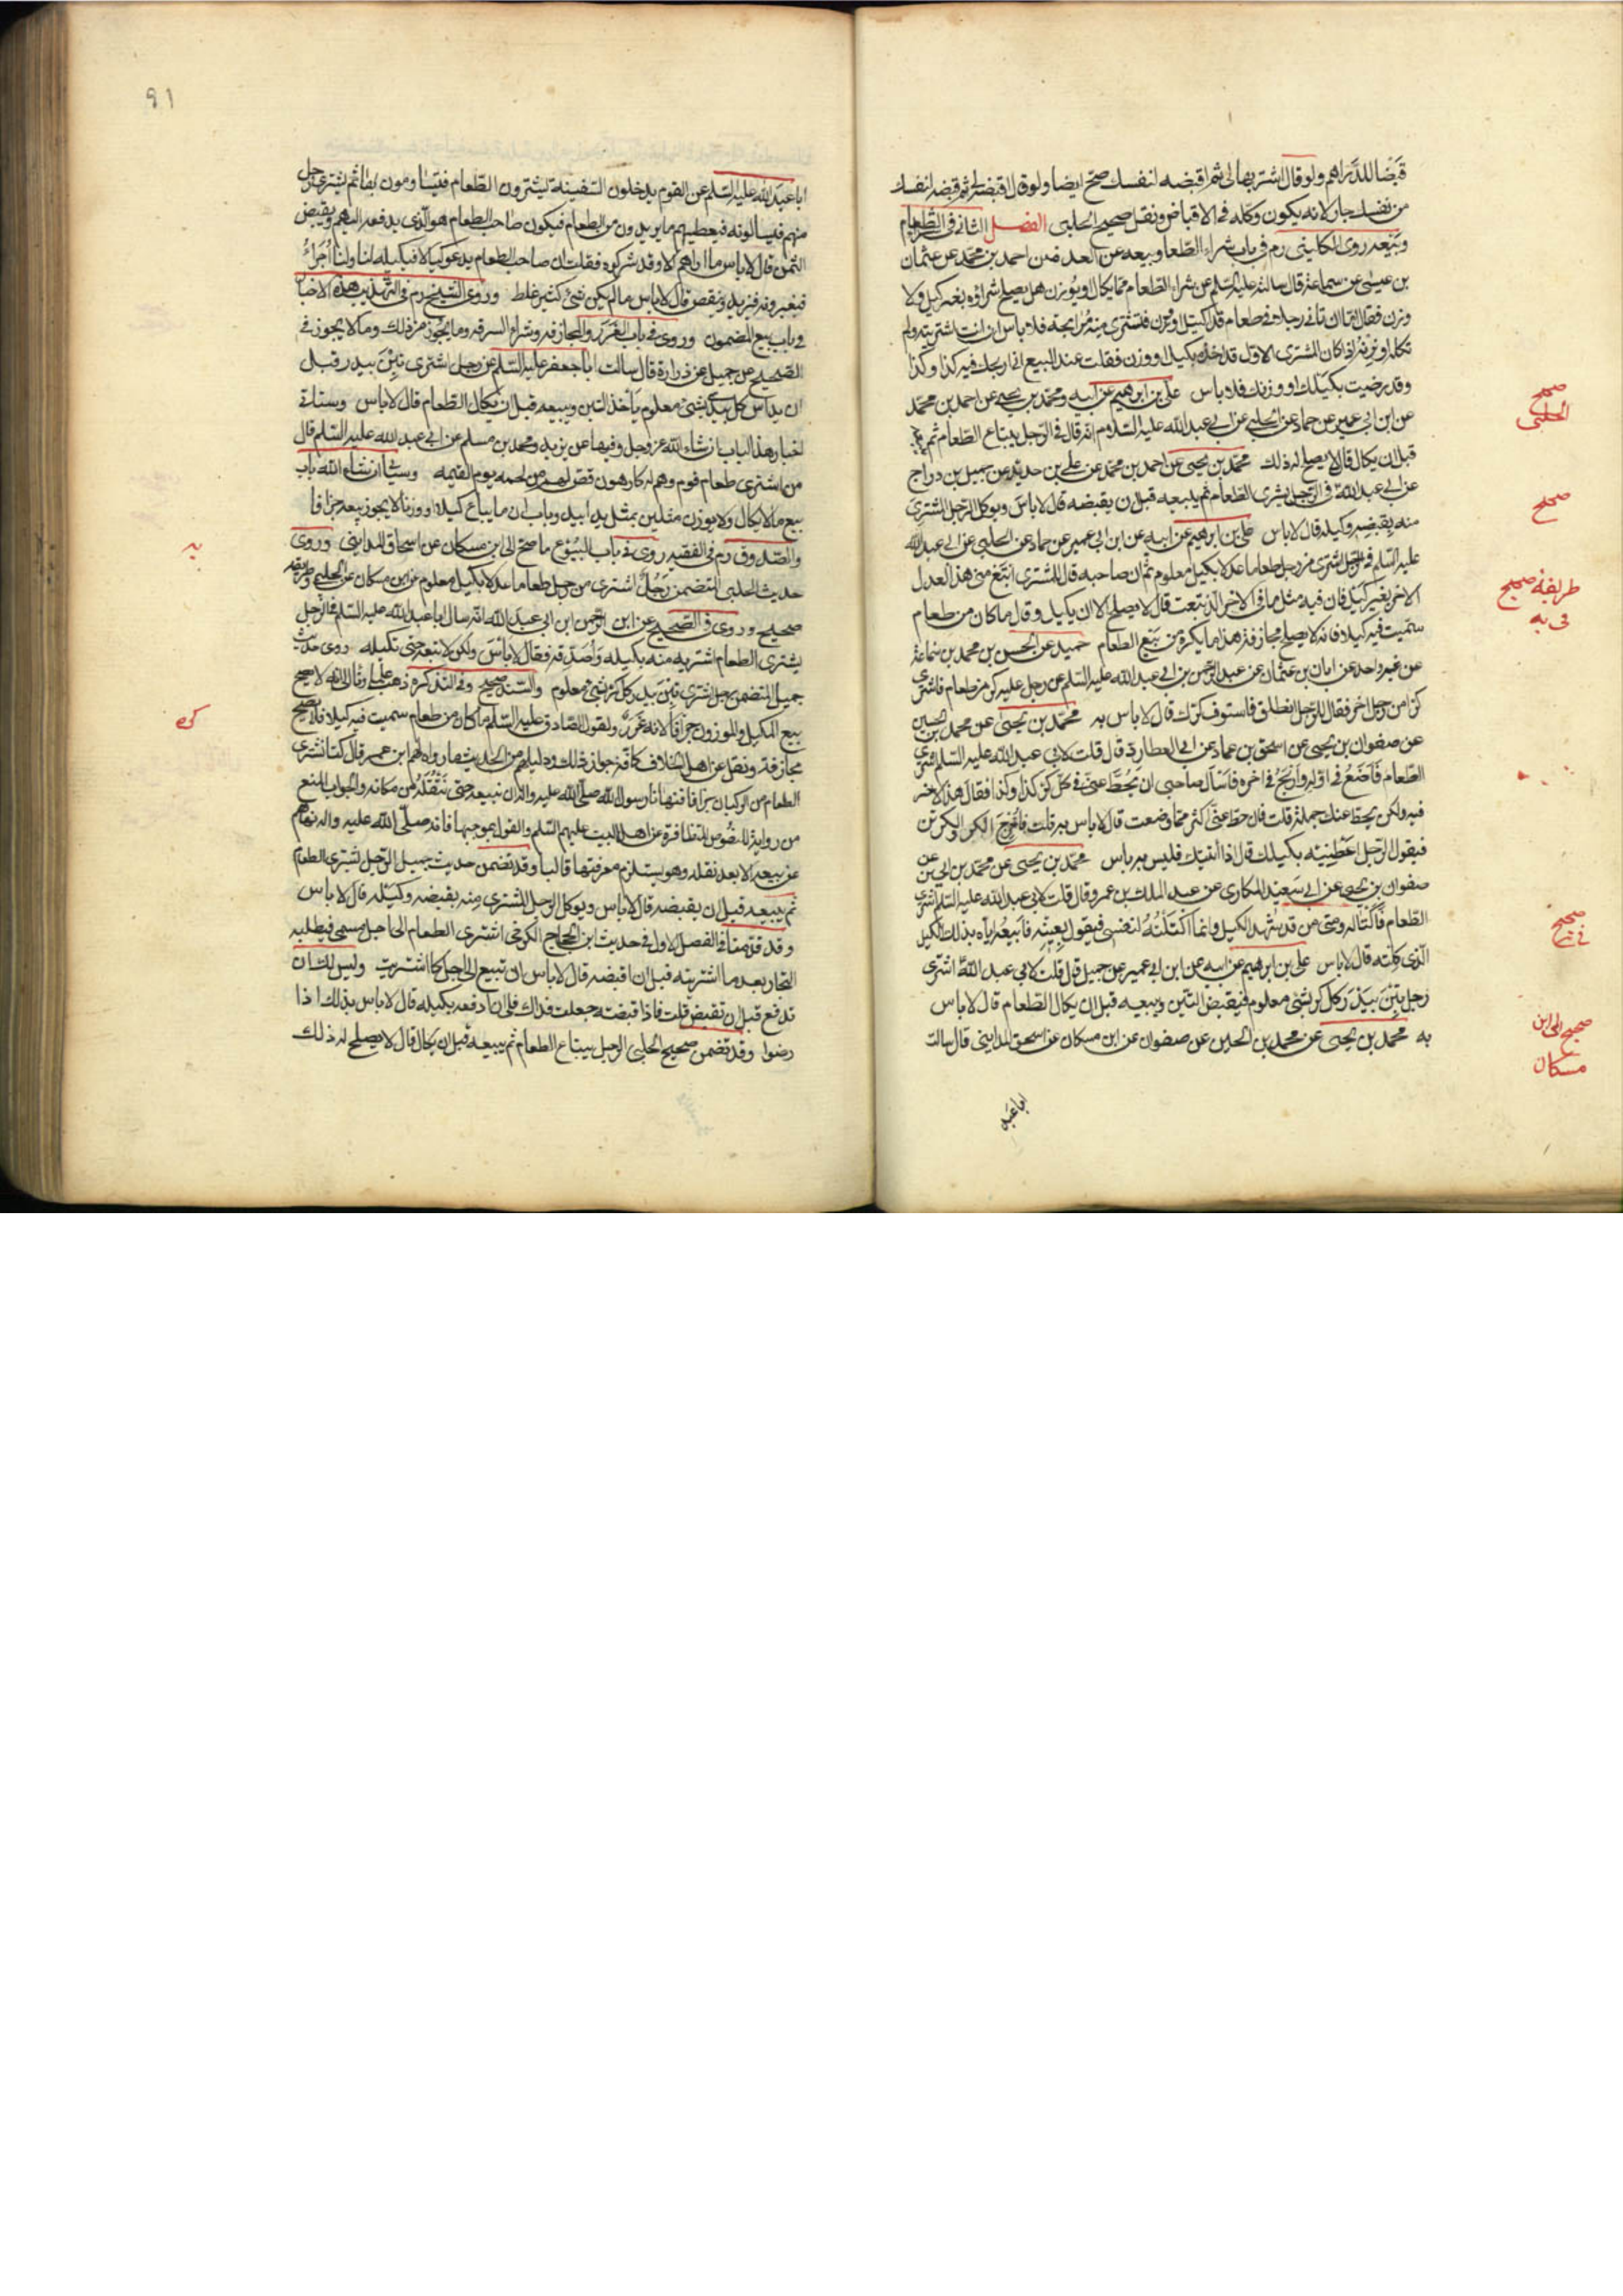 قبضا للدراهم ولو قال اشتر بها لي ثم اقبضه لنفسك صح ايضا ولو قال اقبضه لي ثم اقبضه لنفسك
من نفسك جاز لانه يكون وكله في الاقباض ونقل صحيح الحلبي الفصل الثاني في الطعام
وبيعه روى الكليني رم في باب شراء الطعام وبيعه عن العدة عن احمد بن محمد عن عثمان
بن عيسى عن سماعة قال سالته عليه السلم عن شراء الطعام مما يكال او يوزن هل يصلح شراؤه بغير كيل ولا
وزن فقال اما ان تاتي رجلا في طعام قد اكتيل او وزن فتشتري منه مرابحة فلا باس ان انت اشتريته ولم
تكله او تزنه اذا كان المشتري الاول قد اخذه بكيل او وزن فقلت عند البيع اني اربحك فيه كذا وكذا
وقد رضيت بكيلك او وزنك فلا باس علي بن ابرهيم عن ابيه ومحمد بن يحيى عن احمد بن محمد
عن ابن ابي عمير عن حماد عن الحلبي عن ابي عبد الله عليه السلام انه قال في الرجل يبتاع الطعام ثم يبيعه
قبل ان يكال قال لا يصلح له ذلك محمد بن يحيى عن احمد بن محمد عن علي بن حديد عن جميل بن دراج
عن ابي عبد الله في الرجل يشتري الطعام ثم يبيعه قبل ان يقبضه قال لا باس ويوكل الرجل المشتري
منه بقبضه وكيله قال لا باس علي بن ابرهيم عن ابيه عن ابن ابي عمير عن حماد عن الحلبي عن ابي عبد الله
عليه السلم في رجل اشترى من رجل طعاما عدلا بكيل معلوم ثم ان صاحبه قال للمشتري ابتع مني هذا العدل
الاخر بغير كيل فان فيه مثل ما في الاخر الذي ابتعت قال لا يصلح الا ان يكيل وقال ما كان من طعام
سميت فيه كيلا فانه لا يصلح مجازفة هذا ما يكره من بيع الطعام حميد عن الحسن بن محمد بن سماعة
عن غير واحد عن ابان بن عثمان عن عبد الرحمن بن ابي عبد الله عليه السلم عن رجل عليه كر من طعام فاشترى
كرا من رجل اخر فقال للرجل انطلق فاستوف كرك قال لا باس به محمد بن يحيى عن محمد بن الحسين
عن صفوان بن يحيى عن اسحق بن عماد عن ابي العطارد قال قلت لابي عبد الله عليه السلم اشتري
الطعام فاضع في اوله واربح في اخره فاسال صاحبي ان يحط عني في كل كر كذا وكذا فقال هذا لا خير
فيه ولكن يحط عنك جملة قلت فان حط عني اكثر مما وضعت قال لا باس به قلت فاخرج الكر والكرين
فيقول الرجل اعطنيه بكيلك قال اذا ائتمنك فليس به باس محمد بن يحيى عن محمد بن الحسين عن
صفوان بن يحيى عن ابي سعيد المكاري عن عبد الملك بن عمرو قال قلت لابي عبد الله عليه السلم اشتري
الطعام فاكتاله ومعي من قد شهد الكيل وانما اكتلته لنفسي فيقول بعنيه فابيعه اياه بذلك الكيل
الذي كلته قال لا باس علي بن ابرهيم عن ابيه عن ابن ابي عمير عن جميل قال قلت لابي عبد الله اشترى
رجل تبن بيدر كل كر بشئ معلوم فيقبض التبن ويبيعه قبل ان يكال الطعام قال لا باس
به محمد بن يحيى عن محمد بن الحسين عن صفوان عن ابن مسكان عن اسحق المدايني قال سالت
ابا عبد
صحيح
الحلبي
صحيح
طريقه صحيح
في يه
صحيح
في
صحيح الى ابن
مسكان
٩١
ابا عبد الله عليه السلم عن القوم يدخلون السفينة يشترون الطعام فيتساومون بها ثم يشتري رجل
منهم فيسالونه فيعطيهم ما يريدون من الطعام فيكون صاحب الطعام هو الذي يدفعه اليهم ويقبض
الثمن قال لا باس ما اراهم الا وقد شركوه فقلت ان صاحب الطعام يدعو كيالا فيكيله لنا ولنا اجراء
فيعيرونه فيزيد وينقص قال لا باس ما لم يكن شئ كثير غلط وروى الشيخ رم في التهذيب هذه الاخبار
في باب بيع المضمون وروى في باب الغرر والمجازفة وشراء السرقة وما يجوز من ذلك وما لا يجوز في
الصحيح عن جميل عن زرارة قال سالت ابا جعفر عليه السلم عن رجل اشترى تبن بيدر قبل
ان يداس كل بيدر بشئ معلوم يأخذ التبن ويبيعه قبل ان يكال الطعام قال لا باس وستاتي
اخبار هذا الباب ان شاء الله عز وجل وفيها عن يزيد ومحمد بن مسلم عن ابي عبد الله عليه السلم قال
من اشترى طعام قوم وهم له كارهون قص لهم من لحمه يوم القيمة وسيأتي ان شاء الله باب
بيع ما لا يكال ولا يوزن مثلين بمثل يدا بيد وباب ان ما يباع كيلا او وزنا لا يجوز بيعه جزافا
والصدوق رم في الفقيه روى في باب البيوع ما صح الى ابن مسكان عن اسحاق المدايني وروى
حديث الحلبي المتضمن رجل اشترى من رجل طعاما عدلا بكيل معلوم عن ابن مسكان عن الحلبي وطريقه
صحيح وروى في الصحيح عن ابن الرحمن ابن ابي عبد الله انه سال ابا عبد الله عليه السلم في الرجل
يشتري الطعام اشتريه منه بكيله واصدقه فقال لا باس ولكن لا تبعه حتى تكيله روى حديث
جميل المتضمن رجل اشترى تبن بيدر كل كر بشئ معلوم والسند صحيح وفي التذكرة ذهب علماؤنا الى انه لا يصح
بيع المكيل والموزون جزافا لانه غرر ولقول الصادق عليه السلم ما كان من طعام سميت فيه كيلا فلا يصلح
مجازفة ونقل عن اهل الخلاف كافة جواز ذلك ودليلهم من الحديث ما رواه لهم ابن عمر قال كنا نشتري
الطعام من الركبان جزافا فنهانا رسول الله صلى الله عليه واله ان نبيعه حتى ننقله من مكانه والجواب المنع
من رواية للنصوص المتظافرة عن اهل البيت عليهم السلم والقول بموجبها فانه صلى الله عليه واله نهاهم
عن بيعه الا بعد نقله وهو يستلزم معرفتها قالبا وقد تضمن حديث جميل الرجل يشتري الطعام
ثم يبيعه قبل ان يقبضه قال لا باس ويوكل الرجل المشتري منه بقبضه وكيله قال لا باس
وقد قدمنا في الفصل الاول في حديث ابن الحجاج الكرخي اشتري الطعام الى اجل مسمى فيطلبه
التجار بعد ما اشتريته قبل ان اقبضه قال لا باس ان تبيع الى اجل كما اشتريت وليس لك ان
تدفع قبل ان تقبض قلت فاذا قبضته جعلت فداك فلي ان ادفعه بكيله قال لا باس بذلك اذا
رضوا وقد تضمن صحيح الحلبي الرجل يبتاع الطعام ثم يبيعه قبل ان يكال قال لا يصلح له ذلك
يه
كره